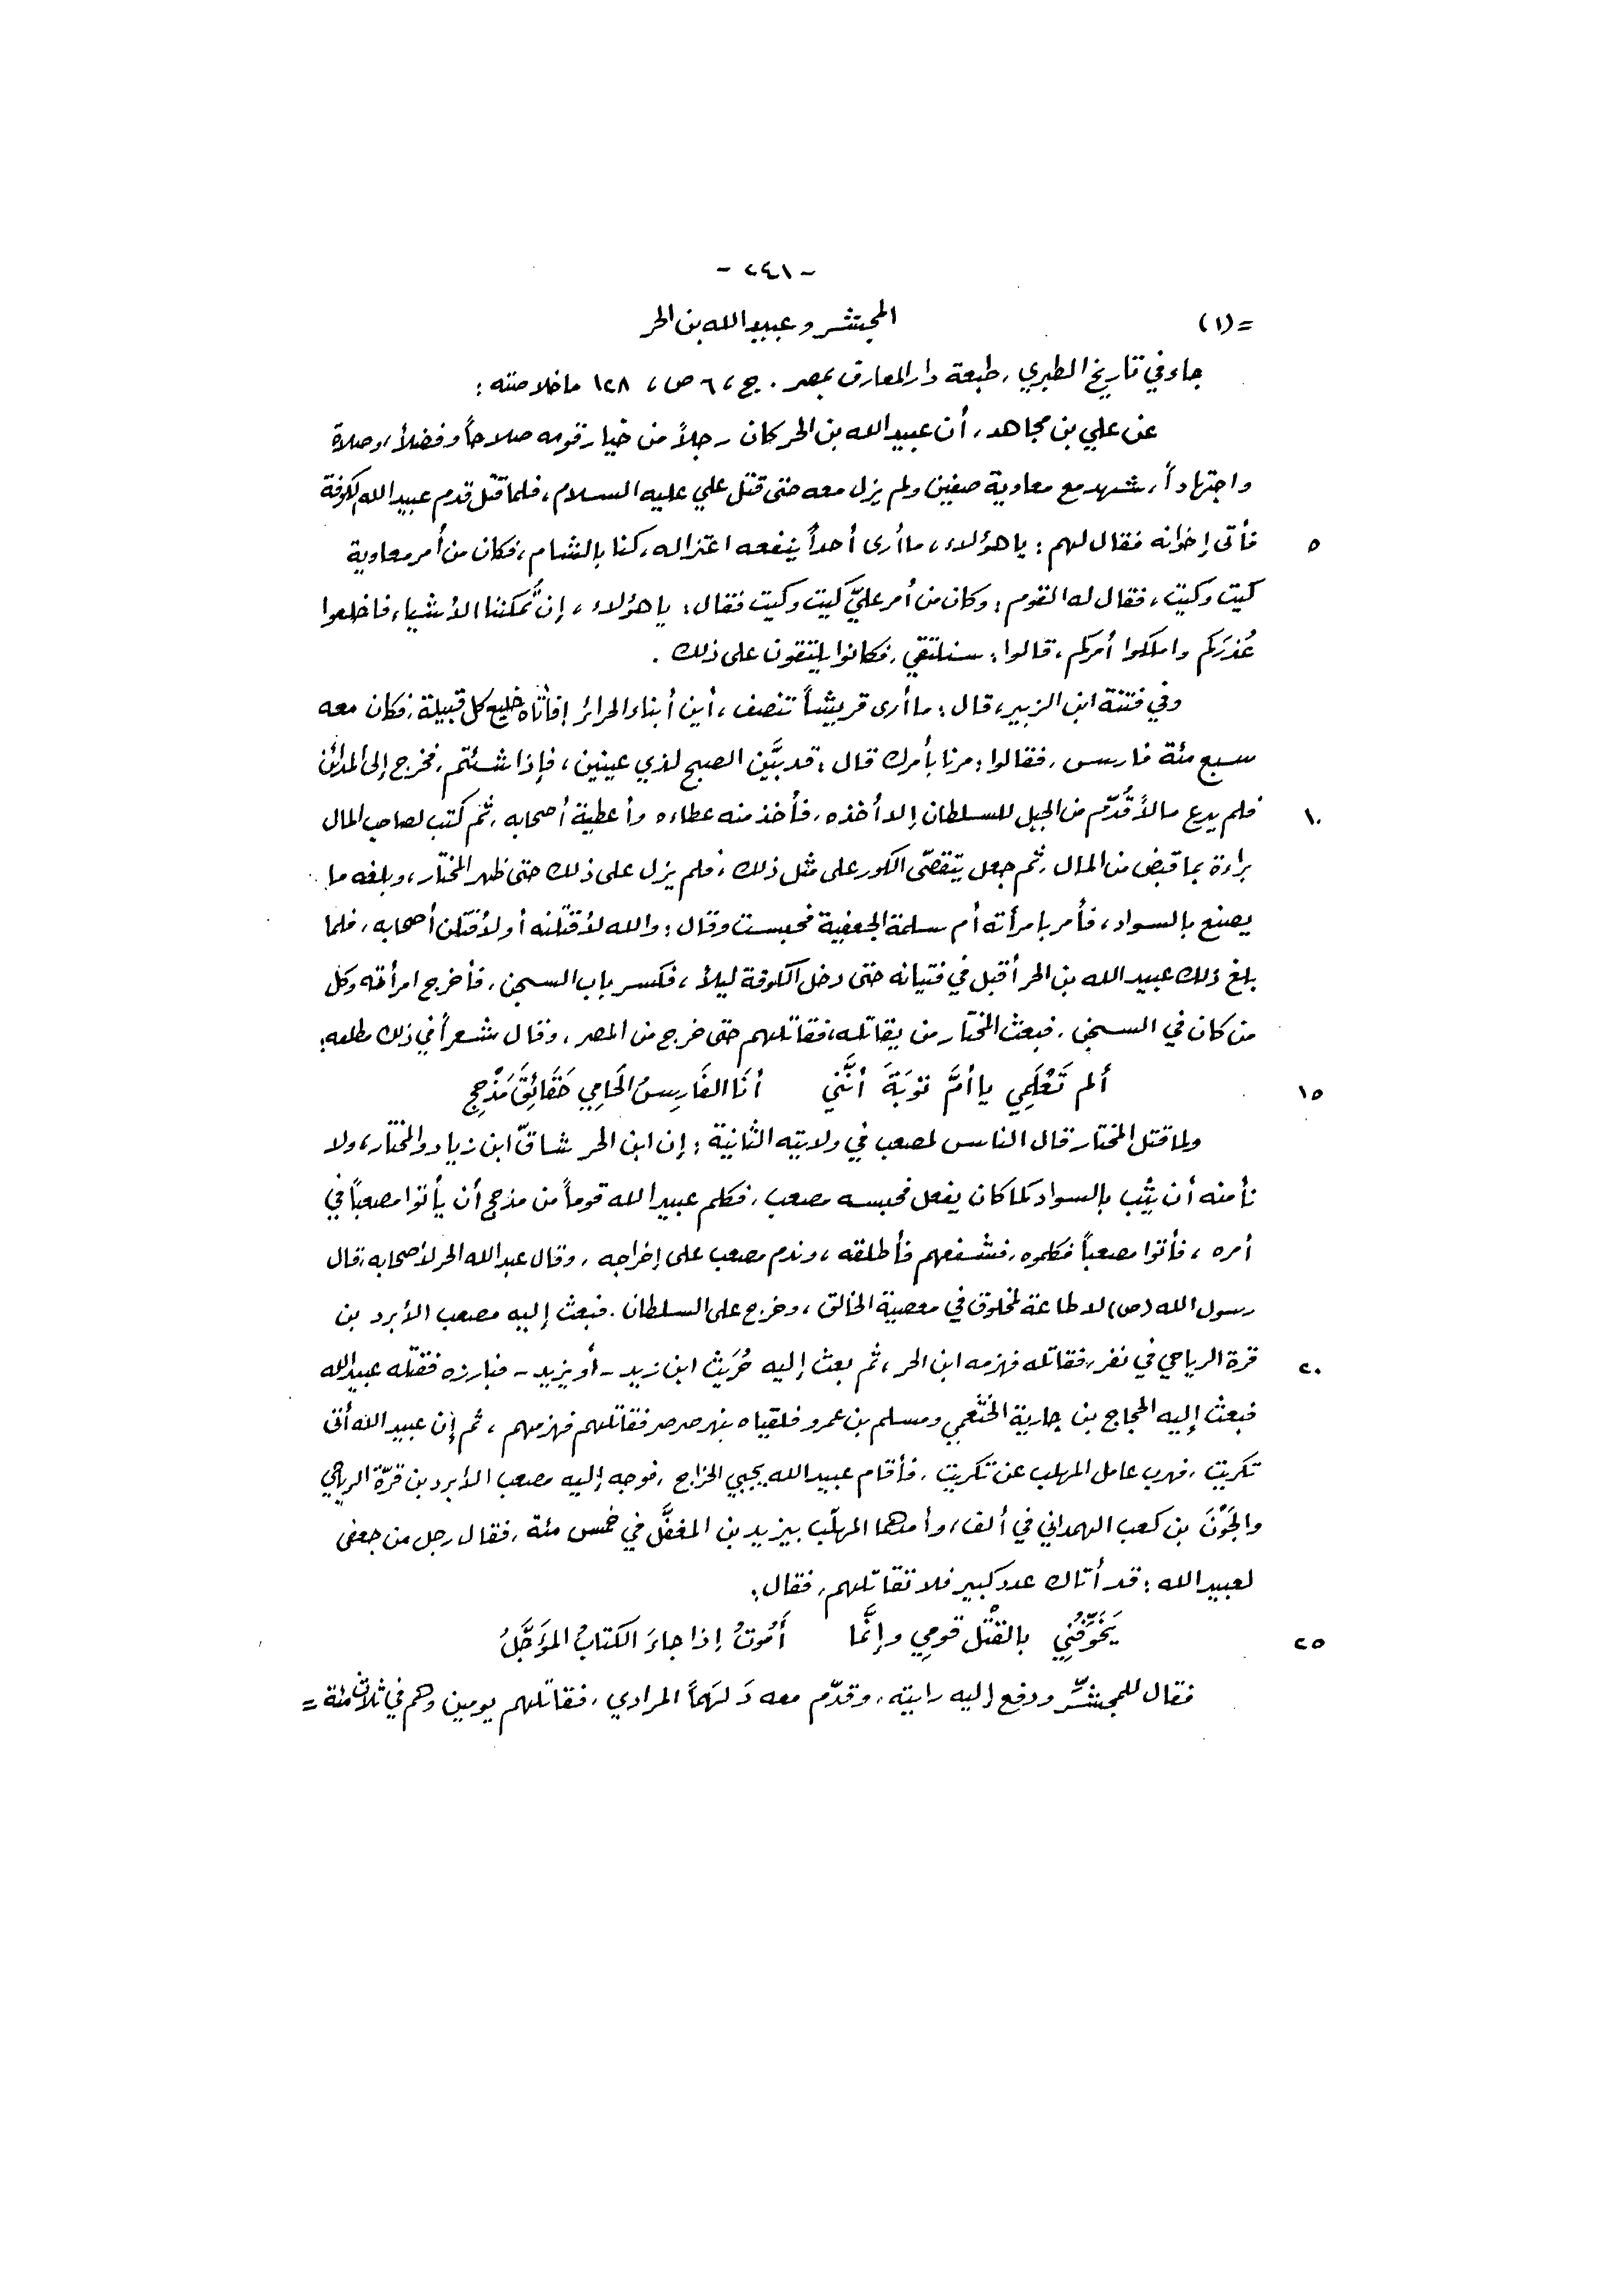 - ٢٤١ -
= (١) المجشر وعبيد الله بن الحر
جاء في تاريخ الطبري، طبعة دار المعارف بمصر. ج، ٦ ص، ١٢٨ ما خلاصته:
عن علي بن مجاهد، أن عبيد الله بن الحر كان رجلاً من خيار قومه صلاحاً وفضلاً، وصلاة
واجتهاداً، شهد مع معاوية صفين ولم يزل معه حتى قتل علي عليه السلام، فلما قتل قدم عبيد الله الكوفة
٥ فأتى إخوانه فقال لهم: يا هؤلاء، ما أرى أحداً ينفعه اعتزاله، كنا بالشام، فكان من أمر معاوية
كيت وكيت، فقال له القوم: وكان من أمر عليّ كيت وكيت فقال: يا هؤلاء، إن تُمكننا الأشياء فاخلعوا
عُذرَكم واملكوا أمركم، قالوا: سنلتقي، فكانوا يلتقون على ذلك.
وفي فتنة ابن الزبير، قال: ما أرى قريشاً تنصف، أين أبناء الحرائر! فأتاه خليع كل قبيلة، فكان معه
سبع مئة فارس، فقالوا: مرنا بأمرك قال: قد بيَّن الصبح لذي عينين، فإذا شئتم، فخرج إلى المدائن
١٠ فلم يدع مالاً قُدّم من الجبل للسلطان إلا أخذه، فأخذ منه عطاءه وأعطية أصحابه، ثم كتب لصاحب المال
براءة بما قبض من المال، ثم جعل يتقصّى الكور على مثل ذلك، فلم يزل على ذلك حتى ظهر المختار، وبلغه ما
يصنع بالسواد، فأمر بامرأته أم سلمة الجعفية فحبست وقال: والله لأقتلنه أو لأقتلن أصحابه، فلما
بلغ ذلك عبيد الله بن الحر أقبل في فتيانه حتى دخل الكوفة ليلاً، فكسر باب السجن، فأخرج امرأته وكل
من كان في السجن، فبعث المختار من يقاتله، فقاتلهم حتى خرج من المصر، وقال شعراً في ذلك مطلعه:
١٥ ألم تَعْلَمِي يا أمَّ تَوْبَةَ أنَّنِي أنَا الفَارِسُ الحَامِي حَقَائِقَ مَذْحِجِ
ولما قتل المختار قال الناس لمصعب في ولايته الثانية: إن ابن الحر شاقّ ابن زياد والمختار، ولا
نأمنه أن يثب بالسواد كما كان يفعل فحبسه مصعب، فكلم عبيد الله قوماً من مذحج أن يأتوا مصعباً في
أمره، فأتوا مصعباً فكلموه، فشفعهم فأطلقه، وندم مصعب على إخراجه، وقال عبد الله الحر لأصحابه، قال
رسول الله (ص) لا طاعة لمخلوق في معصية الخالق، وخرج على السلطان. فبعث إليه مصعب الأبرد بن
٢٠ قرة الرياحي في نفر، فقاتله فهزمه ابن الحر، ثم بعث إليه حُرَيث ابن زيد - أو يزيد - فبارزه فقتله عبيد الله
فبعث إليه الحجاج بن جارية الخَثْعمي ومسلم بن عمرو فلقياه بنهر صرصر فقاتلهم فهزمهم، ثم إن عبيد الله أتى
تكريت، فهرب عامل المهلب عن تكريت، فأقام عبيد الله يجبي الخراج، فوجه إليه مصعب الأبرد بن قرّة الرياحي
والجَوْنَ بن كعب الهمداني في ألف، وأمدهما المهلّب بيزيد بن المغفَّل في خمس مئة، فقال رجل من جعفى
لعبيد الله: قد أتاك عدد كبير فلا تقاتلهم، فقال:
٢٥ يَخَوِّفُنِي بالقتْل قومِي وإنَّما أَمُوتُ إذا جاءَ الكتابُ المؤَجَّلُ
فقال للمجشِّر ودفع إليه رايته، وقدّم معه دَلهَماً المرادي، فقاتلهم يومين وهم في ثلاث مئة =